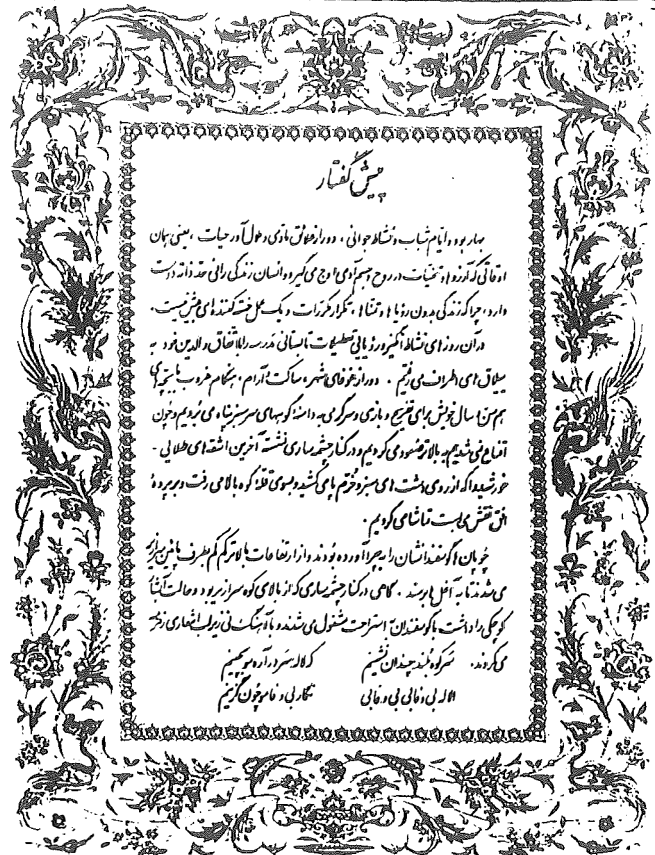 پیش گفتار
بهار بود و ایام شباب و نشاط جوانی، دور از علائق مادی و ملال آور حیات، یعنی همان
اوقاتی که آرزوها و تمنیات در روح و جسم آدمی اوج می گیرد و انسان زندگی را فی حد ذاته دوست
دارد، چرا که زندگی بدون رؤیاها و تمناها، تکرار مکررات و یک عمل خسته کننده ای بیش نیست.
در آن روزهای نشاط انگیز و رؤیائی تعطیلات تابستانی مدرسه را با اتفاق والدین خود به
ییلاق های اطراف می رفتیم. دور از غوغای شهر، ساکت آرام، هنگام غروب با بچه های
هم سن و سال خویش برای تفریح و بازی و سرگرمی به دامنه کوههای سرسبز پناه می بردیم و چون
اقناع نمی شدیم به بالاتر صعود می کردیم و در کنار چشمه ساری نشسته آخرین اشعه های طلایی -
خورشید را که از روی دشت های سبز و خرم پا می کشید و بسوی قله کوه بالا می رفت و بر پرده
افق نقش می بست تماشا می کردیم.
چوپانان گوسفندانشان را به چرا آورده بودند و از ارتفاعات بالاتر کم کم بطرف پائین سرازیر
می شدند تا به آغل ها برسند. گاهی در کنار چشمه ساری که از بالای کوه سرازیر بود و حالت آبشار
کوچکی را داشت با گوسفندان استراحت مشغول می شدند و با آهنگ نی زیر لب اشعاری زمزمه
می کردند. سر کوه بلند چندان نشینم که لاله سر در آره مو بچینم
الاله بی وفائی بی وفائی نگار بی وفا مو چون گزینم